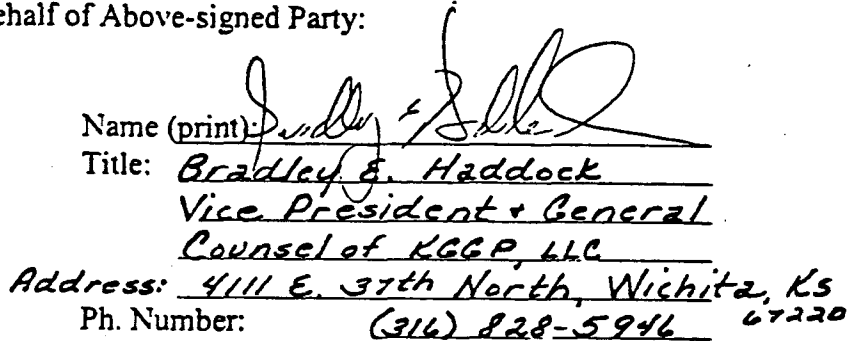 ehalf of Above-signed Party:
Name (print):
Title: Bradley E. Haddock
Vice President + General
Counsel of KGGP, LLC
Address: 4111 E. 37th North, Wichita, Ks
67220
Ph. Number: (316) 828-5946